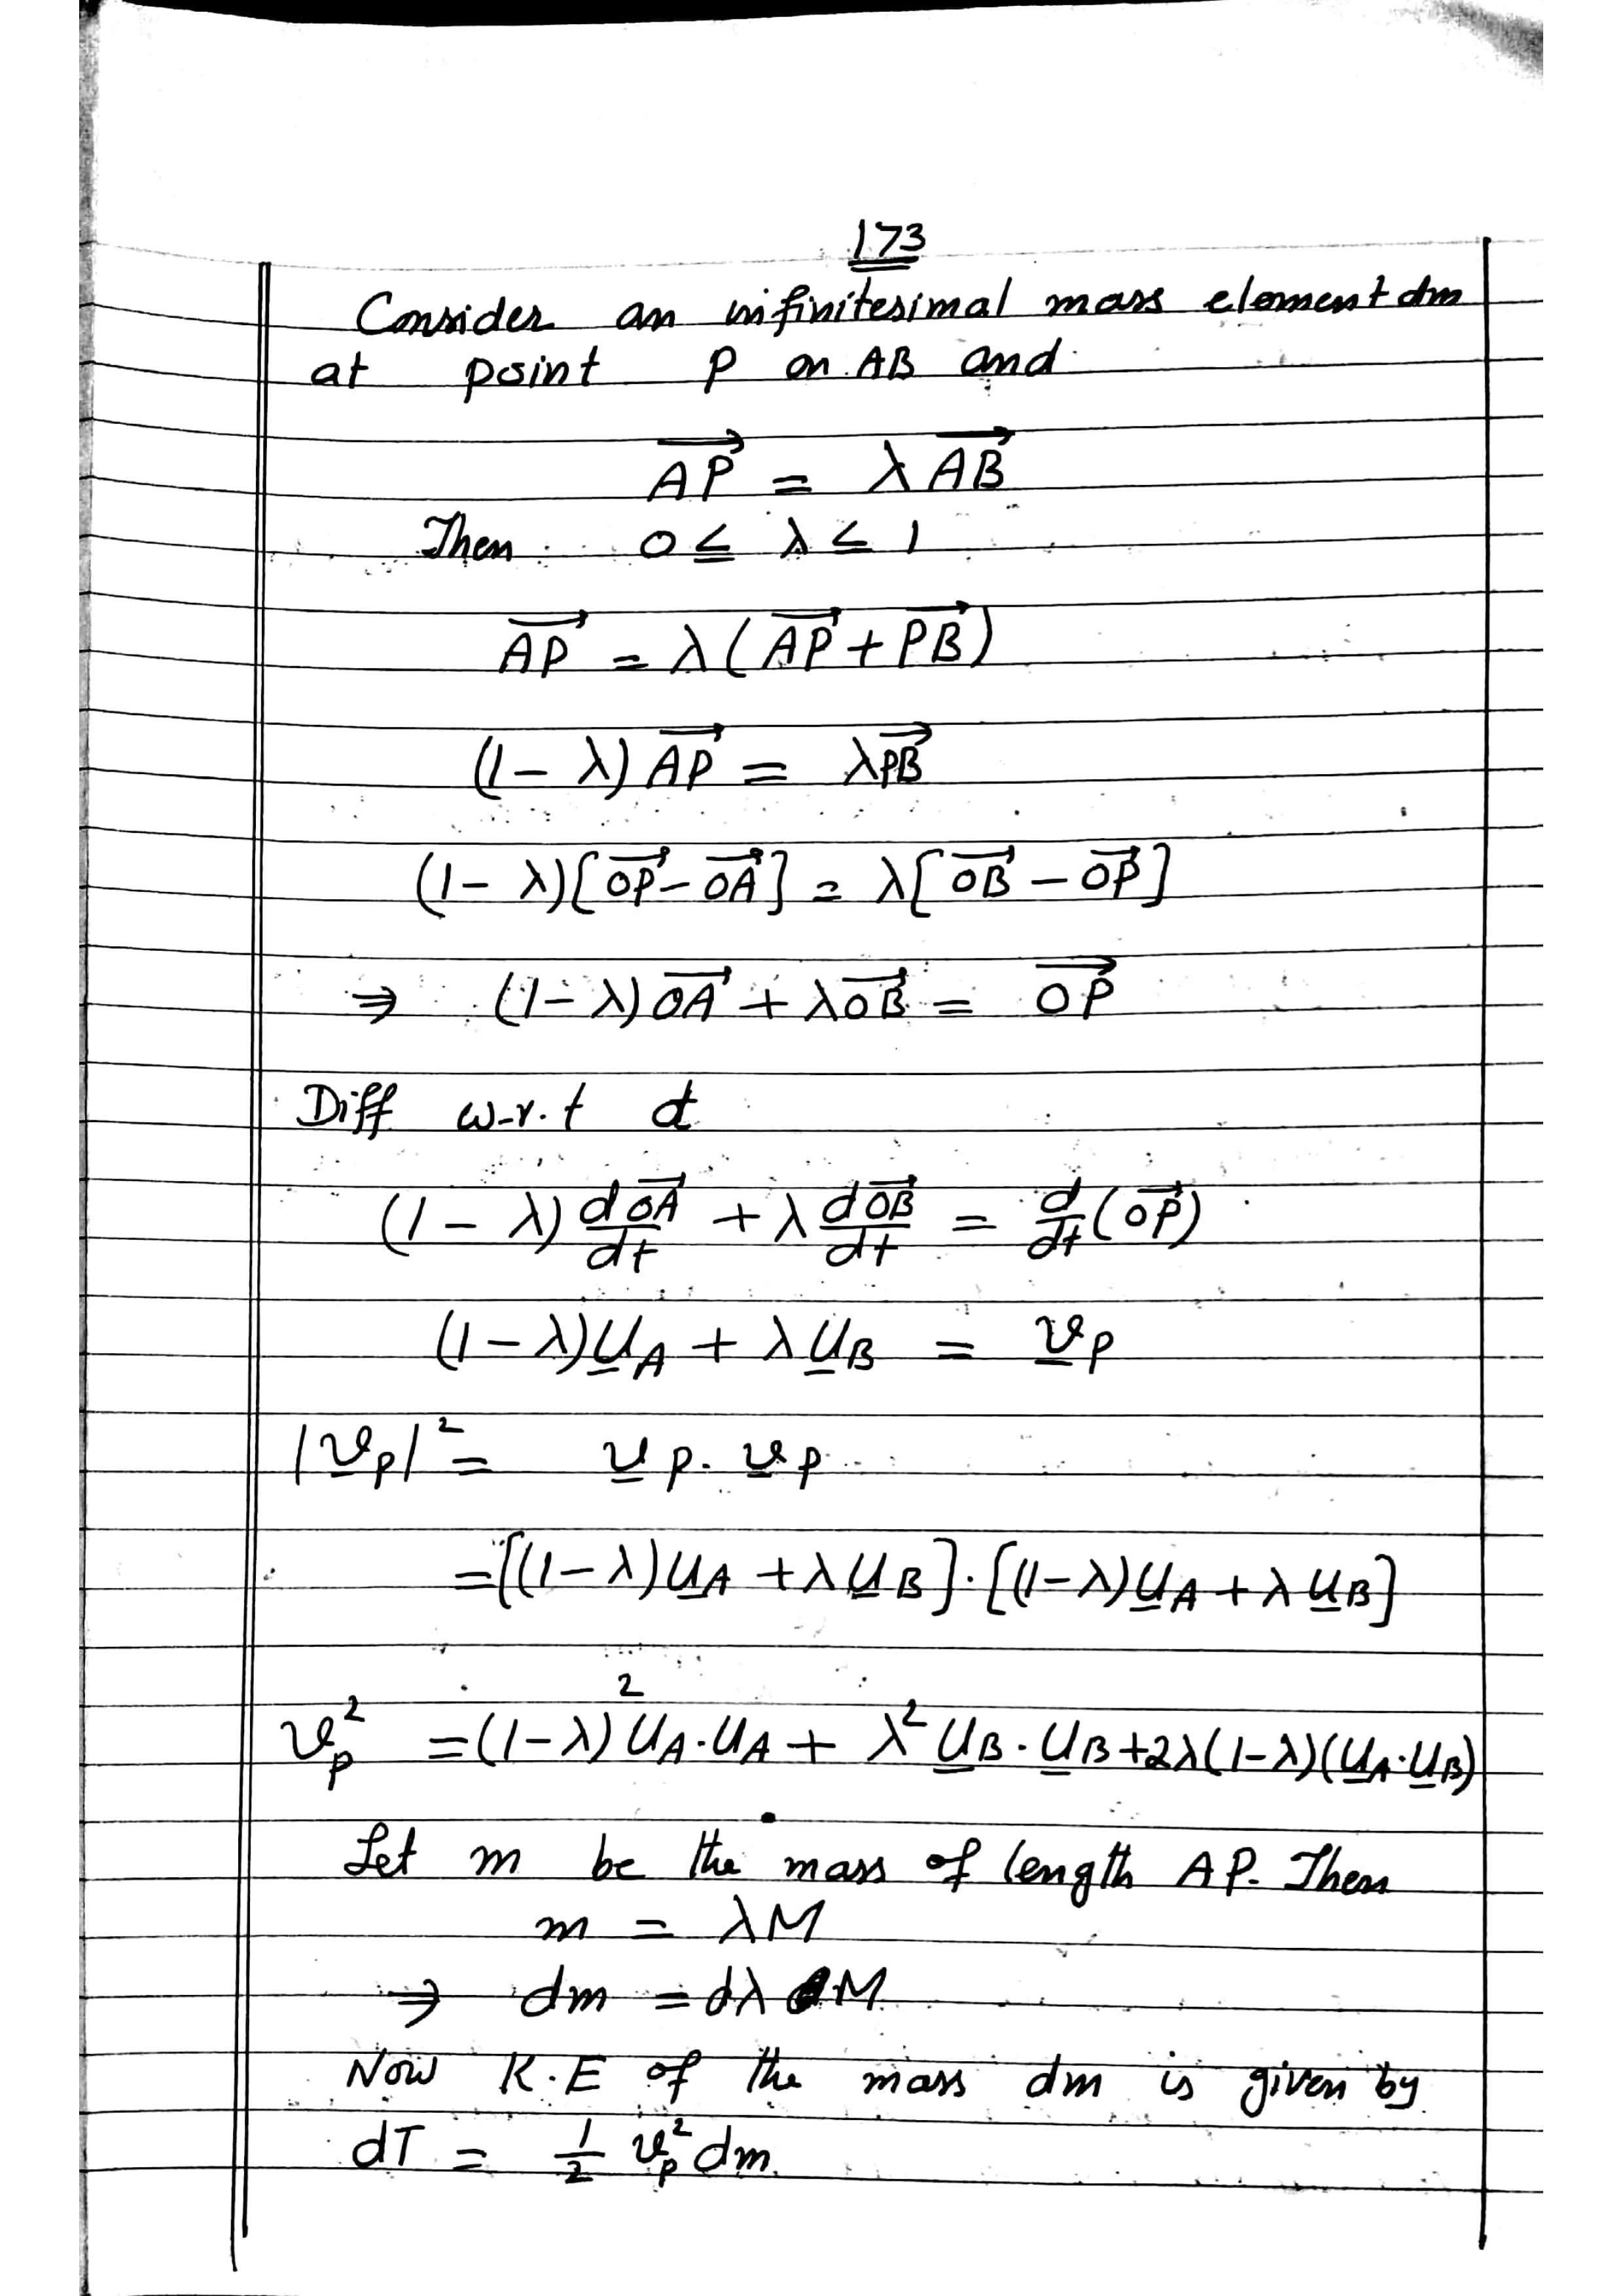 173
Consider an infinitesimal mass element dm
at point P on AB and
$\overrightarrow{AP} = \lambda \overrightarrow{AB}$
Then $0 \leq \lambda \leq 1$
$\overrightarrow{AP} = \lambda(\overrightarrow{AP} + \overrightarrow{PB})$
$(1-\lambda)\overrightarrow{AP} = \lambda\overrightarrow{PB}$
$(1-\lambda)[\overrightarrow{OP} - \overrightarrow{OA}] = \lambda[\overrightarrow{OB} - \overrightarrow{OP}]$
$\Rightarrow (1-\lambda)\overrightarrow{OA} + \lambda\overrightarrow{OB} = \overrightarrow{OP}$
Diff w-r.t t
$(1-\lambda)\frac{d\overrightarrow{OA}}{dt} + \lambda\frac{d\overrightarrow{OB}}{dt} = \frac{d}{dt}(\overrightarrow{OP})$
$(1-\lambda)\underline{U}_A + \lambda\underline{U}_B = \underline{v}_P$
$|\underline{v}_P|^2 = \underline{v}_P . \underline{v}_P$
$= [(1-\lambda)\underline{U}_A + \lambda\underline{U}_B] . [(1-\lambda)\underline{U}_A + \lambda\underline{U}_B]$
$v_P^2 = (1-\lambda)^2 U_A . U_A + \lambda^2 \underline{U}_B . \underline{U}_B + 2\lambda(1-\lambda)(\underline{U}_A . \underline{U}_B)$
Let m be the mass of length AP. Then
$m = \lambda M$
$\Rightarrow dm = d\lambda M$
Now K.E of the mass dm is given by
$dT = \frac{1}{2} v_P^2 dm$